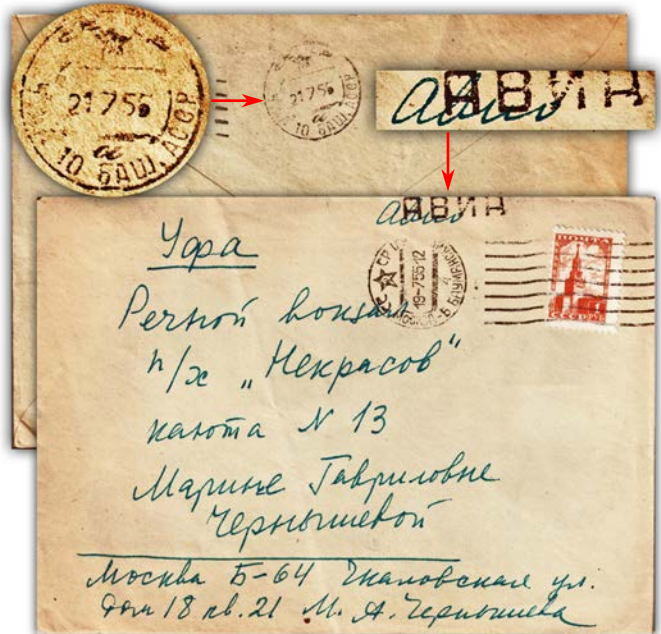 21 7 55
10 БАШ. АССР
21 7 55
10 БАШ. АССР
Авиа
АВИА
Авиа
АВИА
19-7 55 12
ПОЧТА
СССР
Уфа
Речной вокзал
п/х „Некрасов"
каюта N 13
Марине Гавриловне
Чернышевой
Москва Б-64 Чкаловская ул.
дом 18 кв. 21 М. А. Чернышева